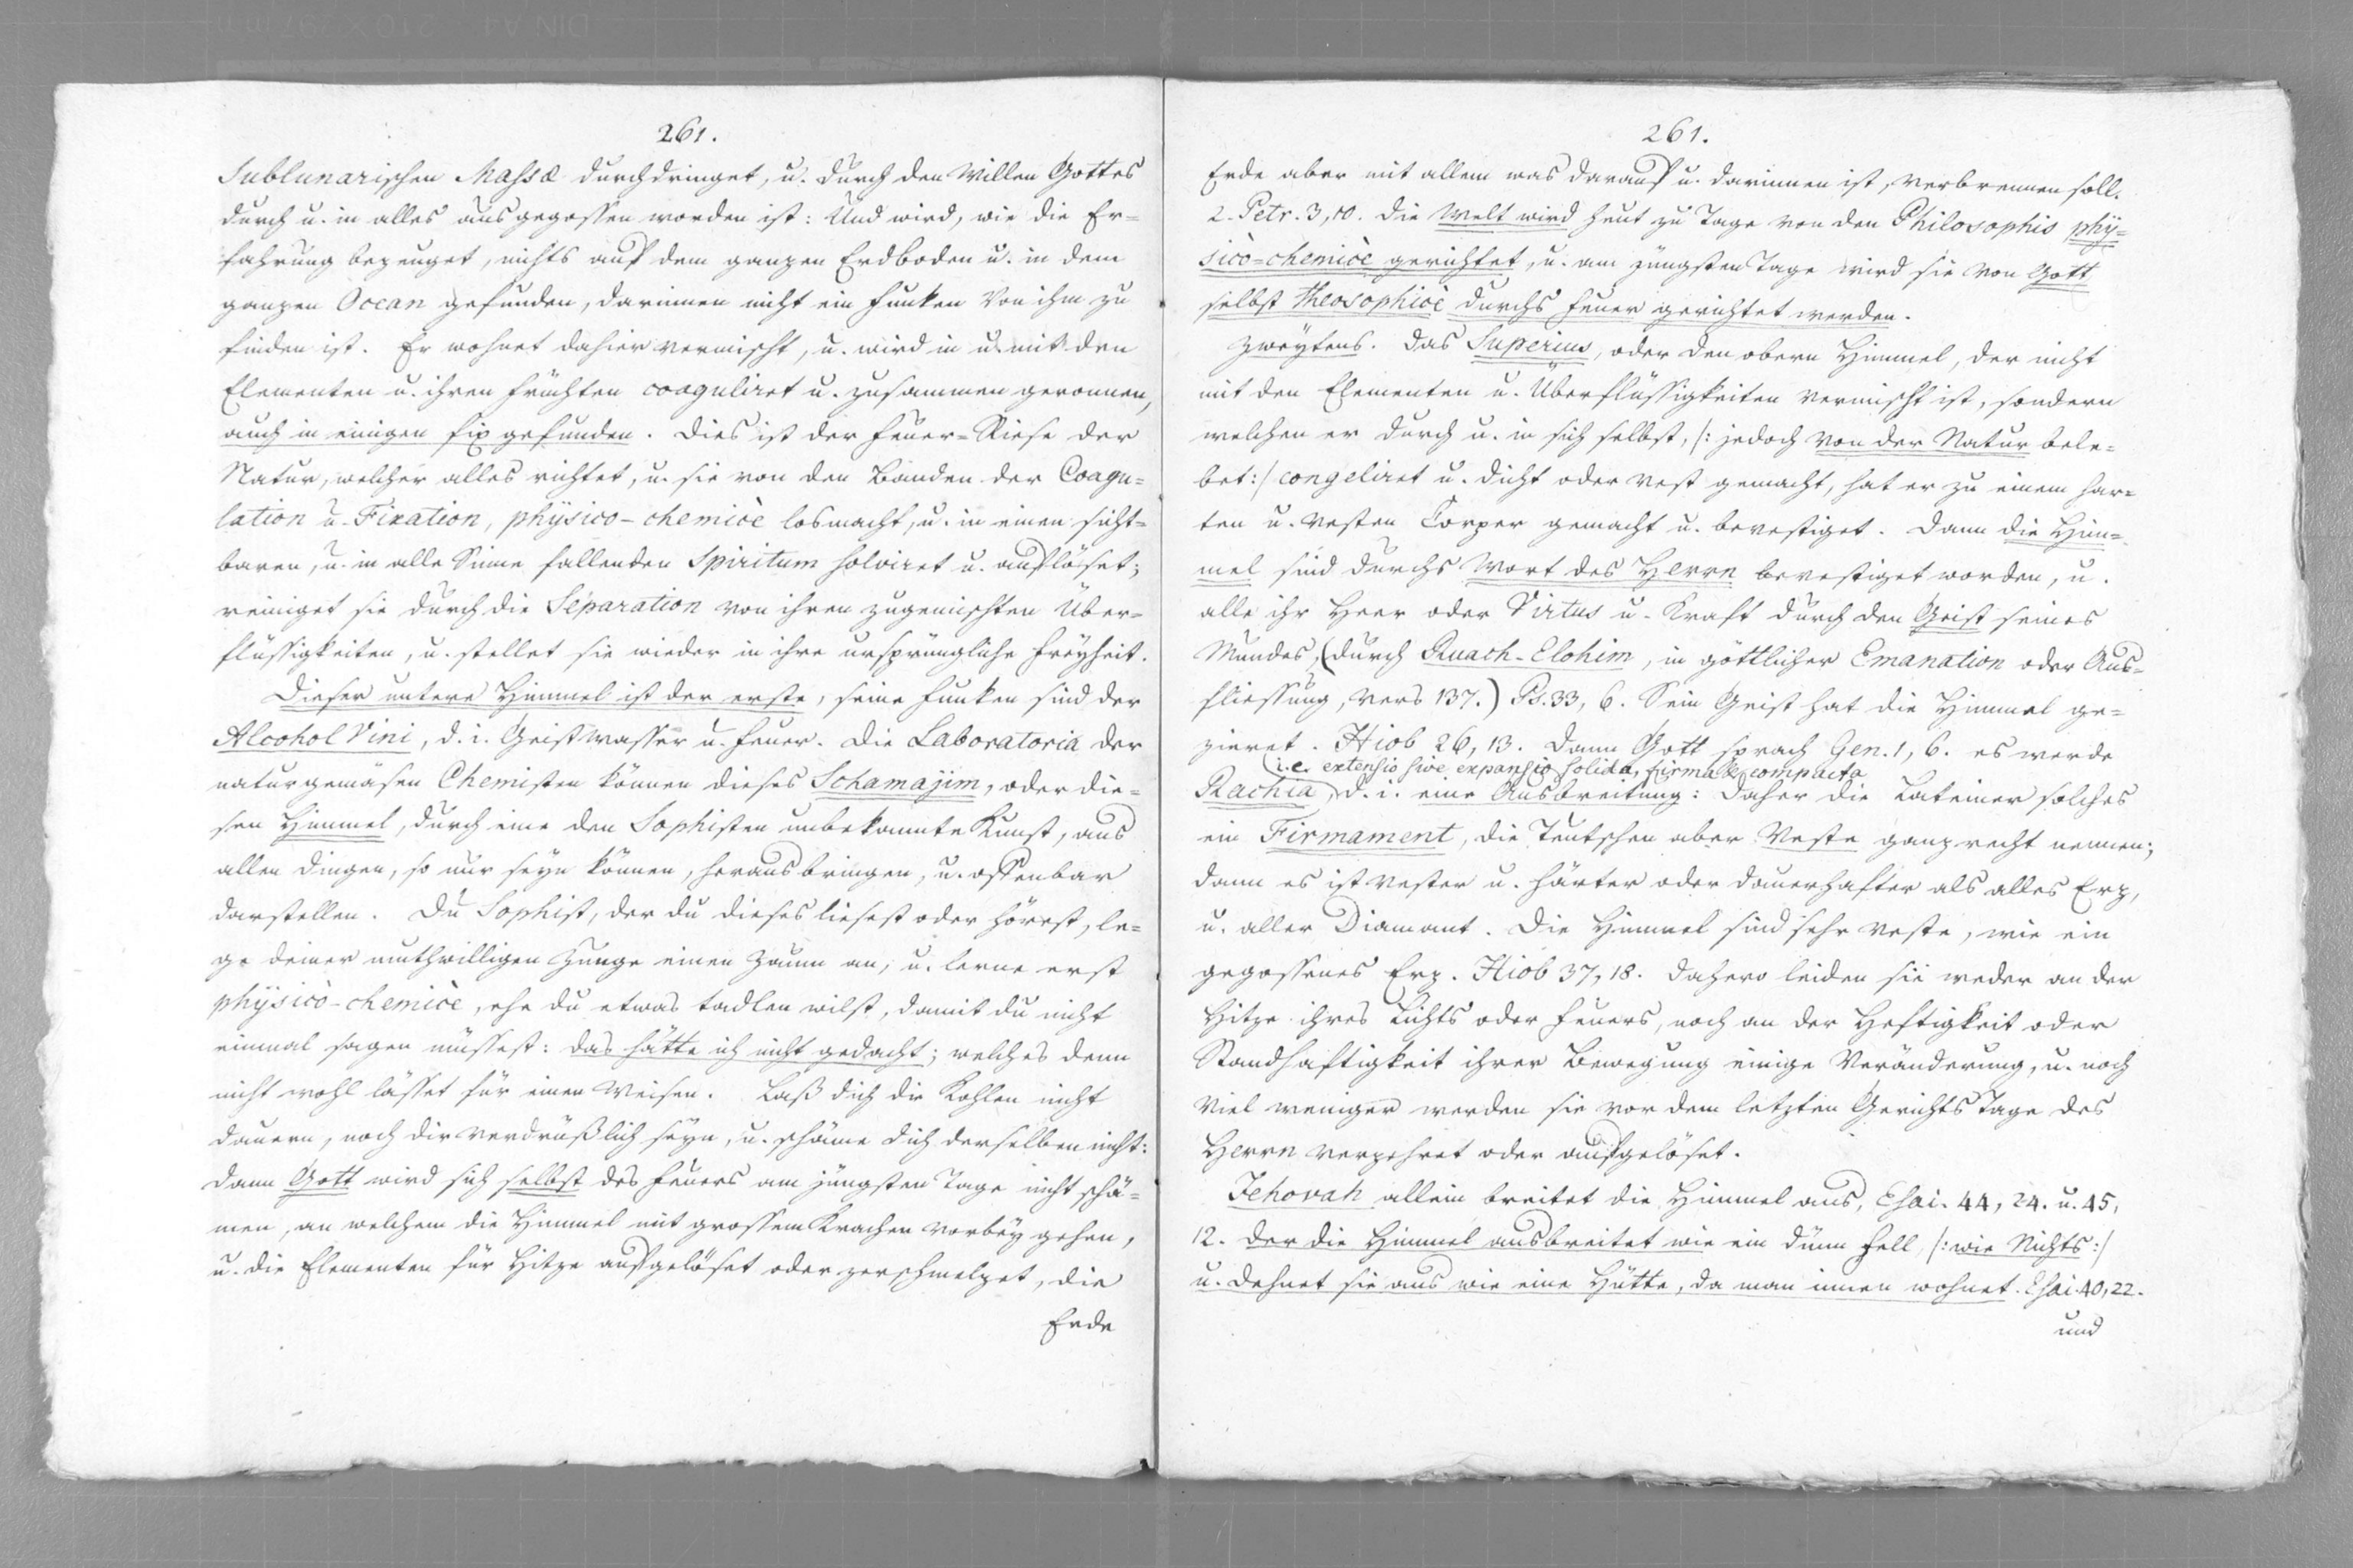 261.
Sublunarischen Massæ durchdringet, u. durch den Willen Gottes
durch u. in alles ausgegossen worden ist: Und wird, wie die Er=
fahrung bezeuget, nichts auf dem ganzen Erdboden u. in dem
ganzen Ocean gefunden, darinnen nicht ein Funken von ihm zu
finden ist. Er wohnet dahier vermischt, u. wird in u. mit den
Elementen u. ihren Früchten coaguliret u. zusammen geronnen,
auch in einigen fix gefunden. Dies ist der Feuer=Riese der
Natur, welcher alles richtet, u. sie von den Banden der Coagu=
lation u. Fixation, physico-chemicè losmacht, u. in einen sicht=
baren, u. in alle Sinne fallenden Spiritum solviret u. auflöset;
reiniget sie durch die Separation von ihren zugemischten Über=
flüssigkeiten, u. stellet sie wieder in ihre ursprüngliche Freyheit.
Dieser untere Himmel ist der erste, seine Funken sind der
Alcohol Vini, d. i. Geistwasser u. Feuer. Die Laboratoria der
naturgemäsen Chemisten können dieses Schamajim, oder die=
sen Himmel, durch eine den Sophisten unbekannte Kunst, aus
allen Dingen, so nur seyn können, herausbringen, u. offenbar
darstellen. Du Sophist, der du dieses liesest oder hörest, le=
ge deiner muthwilligen Zunge einen Zaum an, u. lerne erst
physicò-chemicè, ehe du etwas tadlen wilst, damit du nicht
einmal sagen müssest: das hätte ich nicht gedacht; welches denn
nicht wohl lässet für einen Weisen. Laß dich die Kohlen nicht
dauern, noch dir verdrüßlich seyn, u. schäme dich derselben nicht:
dann Gott wird sich selbst des Feuers am jüngsten Tage nicht schä=
men, an welchem die Himmel mit grossem Krachen vorbey gehen,
u. die Elementen für Hitze aufgelöset oder zerschmelzet, die
Erde
261.
Erde aber mit allem was darauf u. darinnen ist, verbrennen soll.
2. Petr. 3, 10. Die Welt wird heut zu Tage von den Philosophis phy=
sicò=chemicè gerichtet, u. am jüngsten Tage wird sie von Gott
selbst theosophicè durchs Feuer gerichtet werden.
Zweytens. Das Superius, oder den obern Himmel, der nicht
mit den Elementen u. Überflüssigkeiten vermischt ist, sondern
welchen er durch u. in sich selbst, /: jedoch von der Natur bele=
bet :/ congeliret u. dicht oder vest gemacht, hat er zu einem har=
ten u. vesten Corper gemacht u. bevestiget. Dann die Him=
mel sind durchs Wort des Herrn bevestiget worden, u.
alle ihr Heer oder Virtus u. Kraft durch den Geist seines
Mundes, (durch Ruach-Elohim, in göttlicher Emanation oder Aus=
fliessung, vers 137.) Ps. 33, 6. Sein Geist hat die Himmel ge=
zieret. Hiob 26, 13. Dann Gott sprach Gen. 1, 6. es werde
(i.e. extensio sive expansio solida, firma & compacta
Rachia, d. i. eine Ausbreitung: Daher die Lateiner solches
ein Firmament, die Teutschen aber Veste ganz recht nennen;
dann es ist vester u. härter oder dauerhafter als alles Erz,
u. aller Diamant. Die Himmel sind sehr veste, wie ein
gegossenes Erz. Hiob 37, 18. Dahero leiden sie weder an der
Hitze ihres Lichts oder Feuers, noch an der Heftigkeit oder
Standhaftigkeit ihrer Bewegung einige Veränderung, u. noch
viel weniger werden sie vor dem letzten Gerichts Tage des
Herrn verzehret oder aufgelöset.
Jehovah allein breitet die Himmel aus, Esai. 44, 24. u. 45,
12. Der die Himmel ausbreitet wie ein dünn Fell /: wie Nichts :/
u. dehnet sie aus wie eine Hütte, da man innen wohnet. Esai. 40, 22.
und